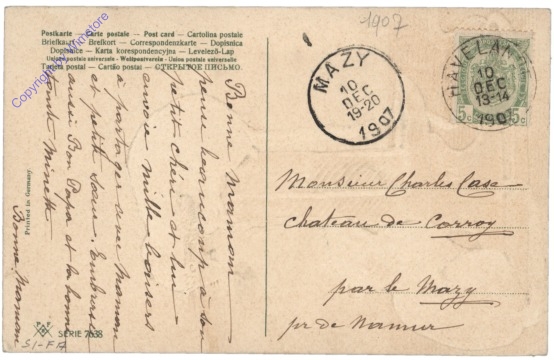 1907
Postkarte - Carte postale - Post card - Cartolina postale
Briefkart - Brefkort - Correspondenzkarte - Dopisnica
Dopisnice - Karta korespondencyjna - Levelező-Lap
Union postale universelle - Weltpostverein - Union postale universale
Tarjeta postal - Cartão postal - ОТКРЫТОЕ ПИСЬМО.
MAZY
10
DEC
19-20
1907
HAVELAN
10
DEC
13-14
1907
5c 5c
Bonne maman
pense beaucoup à son
petit chéri et lui
envoie mille baisers
à partager avec Maman
et petit Jean. Embrasse
aussi Bon Papa et ta bonne
tante Minette
Bonne Maman
Monsieur Charles Case
chateau de Corroy
par le Mazy
pr de Namur
Printed in Germany.
SERIE 7638
S1-F17